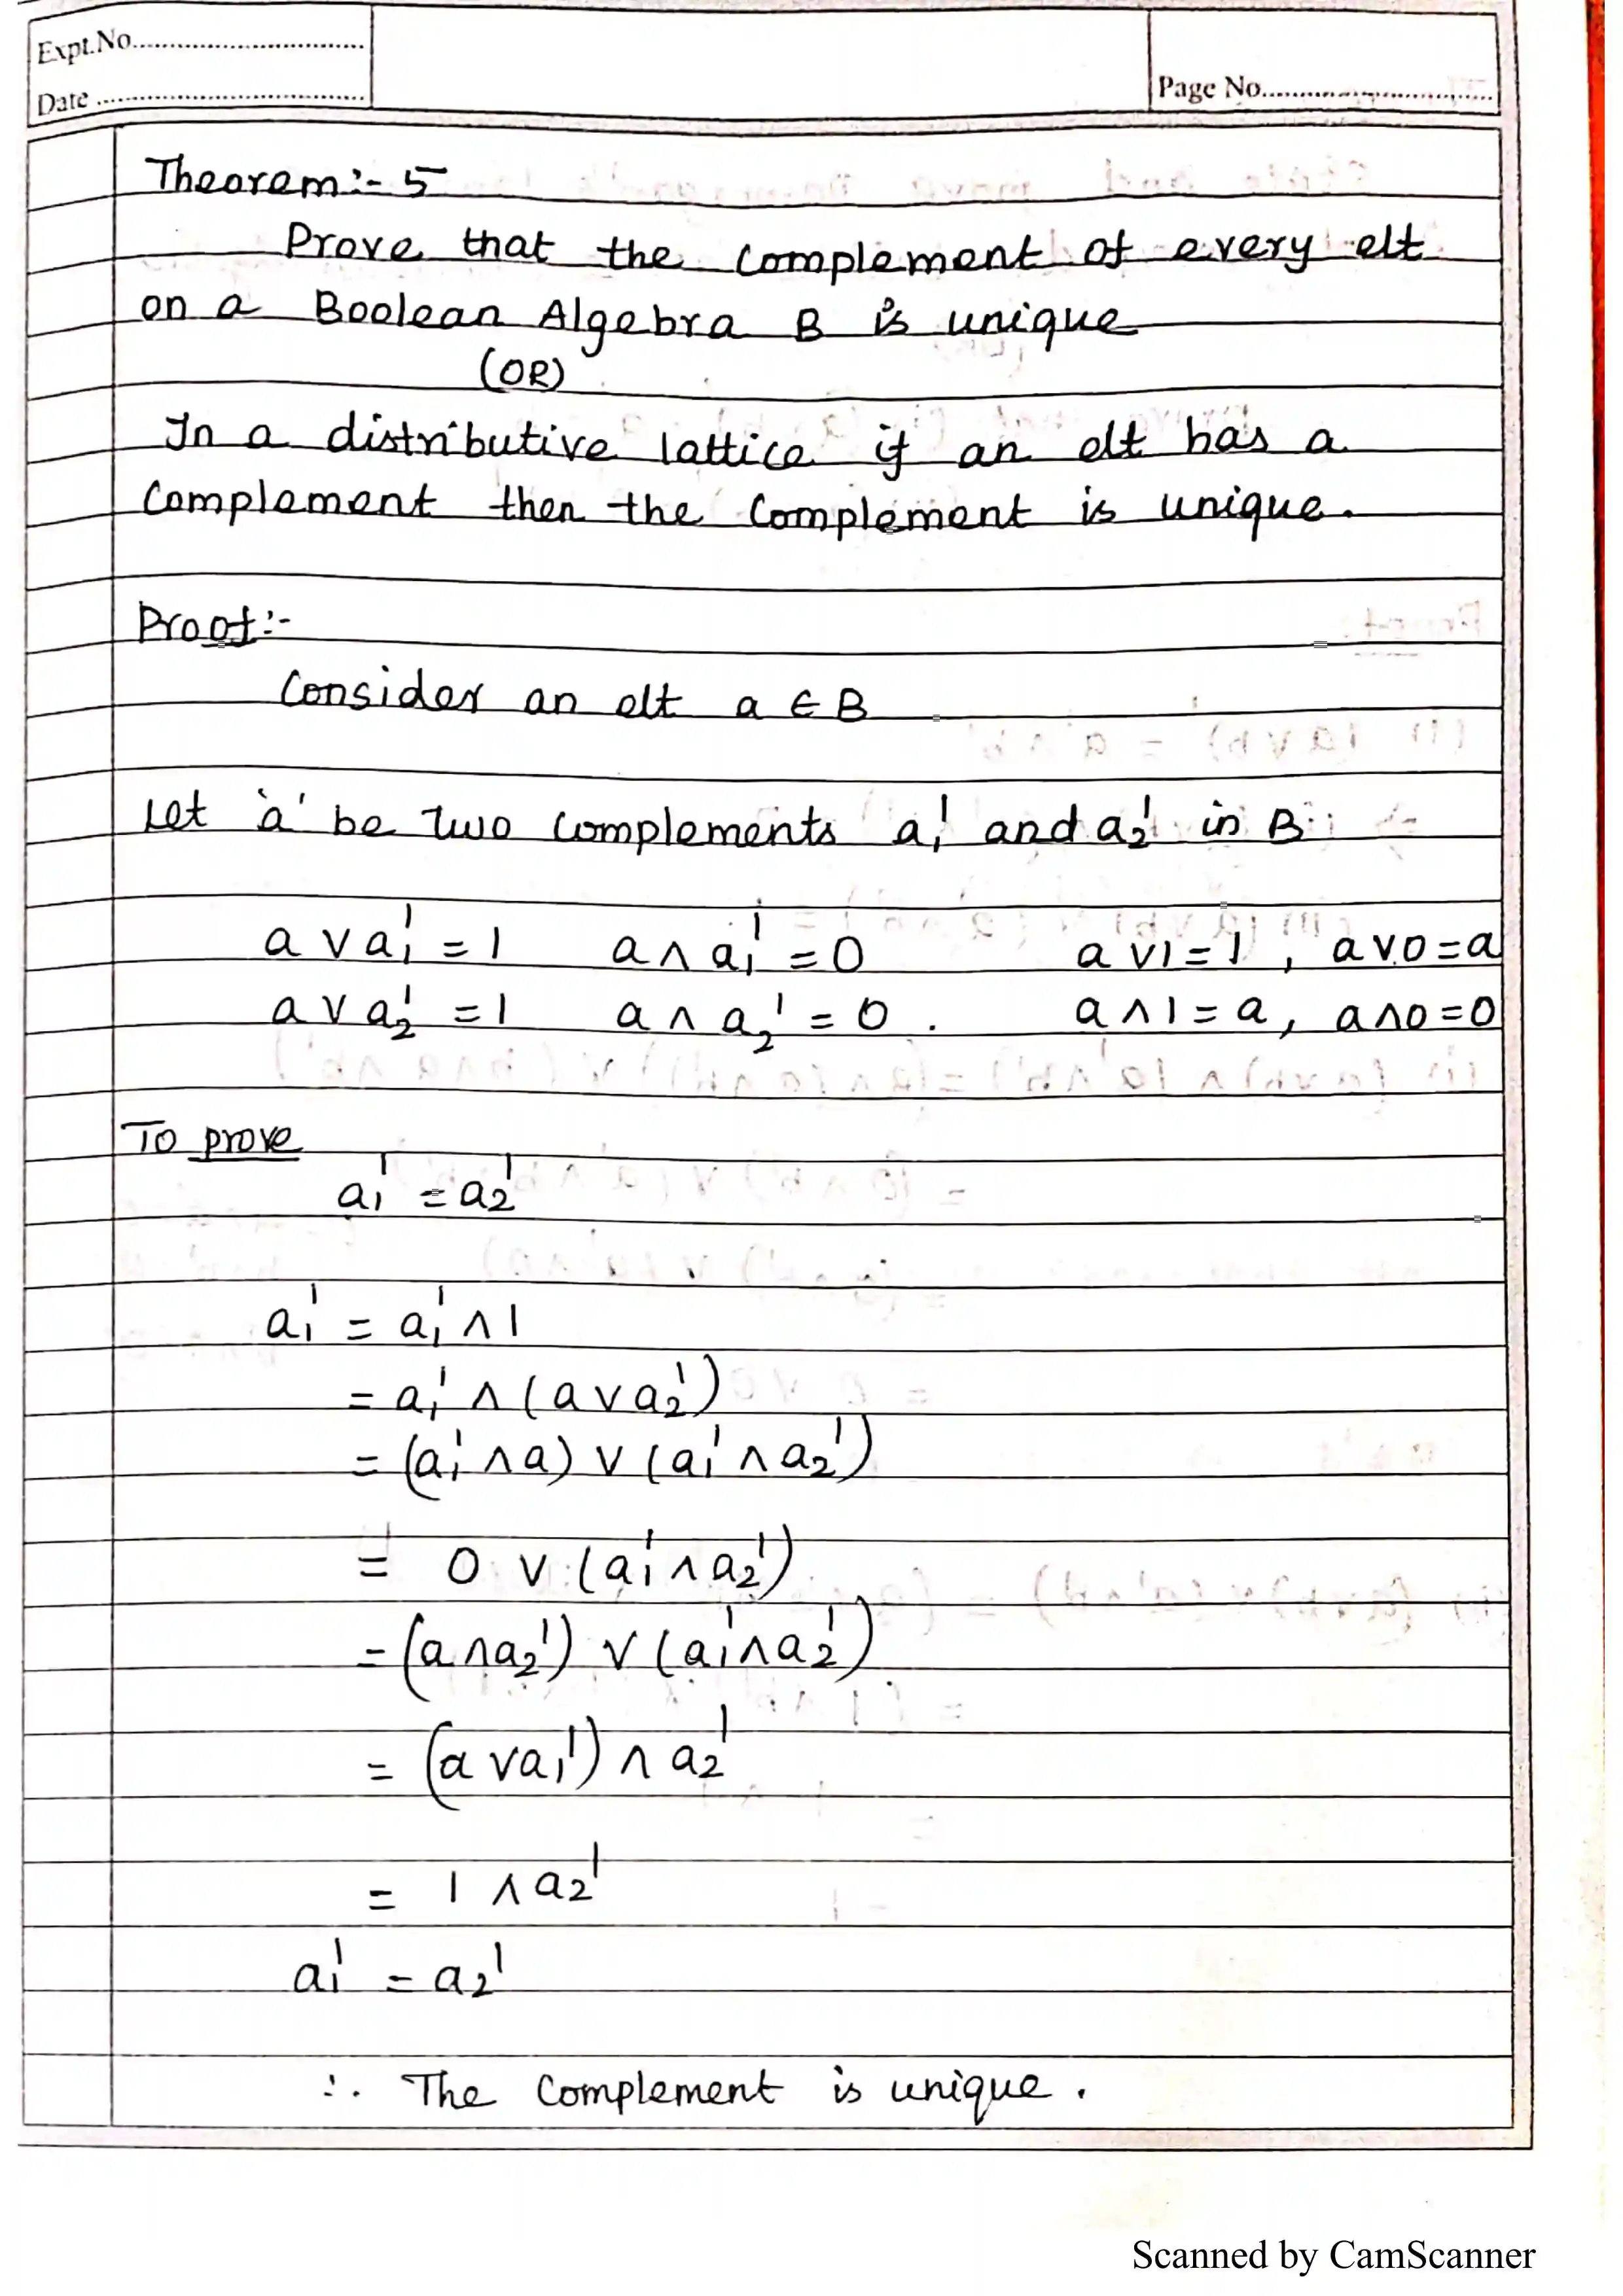 Expt.No.
Date
Page No.
Theorem:- 5
Prove that the complement of every elt
on a Boolean Algebra B is unique
(OR)
In a distributive lattice if an elt has a
complement then the complement is unique.
Proof:-
Consider an elt a ∈ B
Let 'a' be two complements a₁' and a₂' in B
a ∨ a₁' = 1 a ∧ a₁' = 0 a ∨ 1 = 1 , a ∨ 0 = a
a ∨ a₂' = 1 a ∧ a₂' = 0 . a ∧ 1 = a, a ∧ 0 = 0
To prove
a₁' = a₂'
a₁' = a₁' ∧ 1
= a₁' ∧ (a ∨ a₂')
= (a₁' ∧ a) ∨ (a₁' ∧ a₂')
= 0 ∨ (a₁' ∧ a₂')
= (a ∧ a₂') ∨ (a₁' ∧ a₂')
= (a ∨ a₁') ∧ a₂'
= 1 ∧ a₂'
a₁' = a₂'
∴ The complement is unique.
Scanned by CamScanner